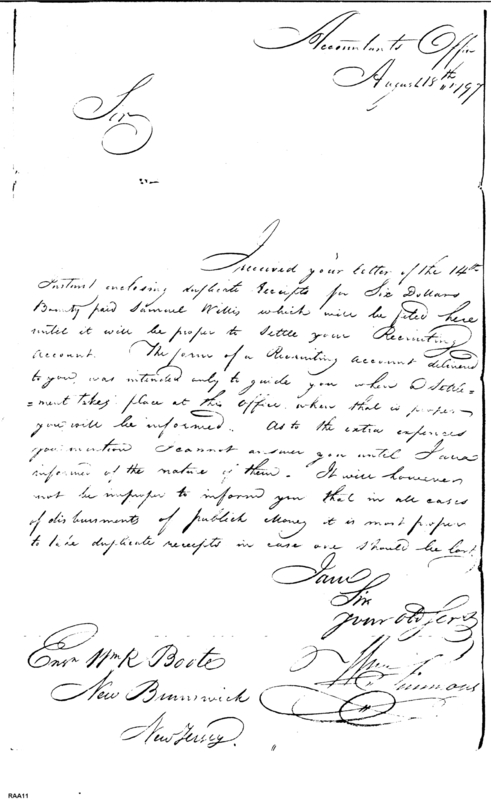 Accountants Office
August 18th 1797
Sir
I received your letter of the 14th
Instant enclosing duplicate receipts for Six Dollars
Bounty paid Samuel Willis which will be filed here
until it will be proper to settle your Recruiting
account. The form of a Recruiting account delivered
to you was intended only to guide you when a Settle=
=ment takes place at this Office, when that is proper
you will be informed. As to the extra expences
you mention I cannot answer you until I am
informed of the nature of them. It will however
not be improper to inform you that in all cases
of disbursments of publick Money it is most proper
to take duplicate receipts in case one should be lost
I am
Sir
your Obd Servt
Wm Simmons
Ensn Wm R Boote
New Brunswick
New Jersey.
RAA11